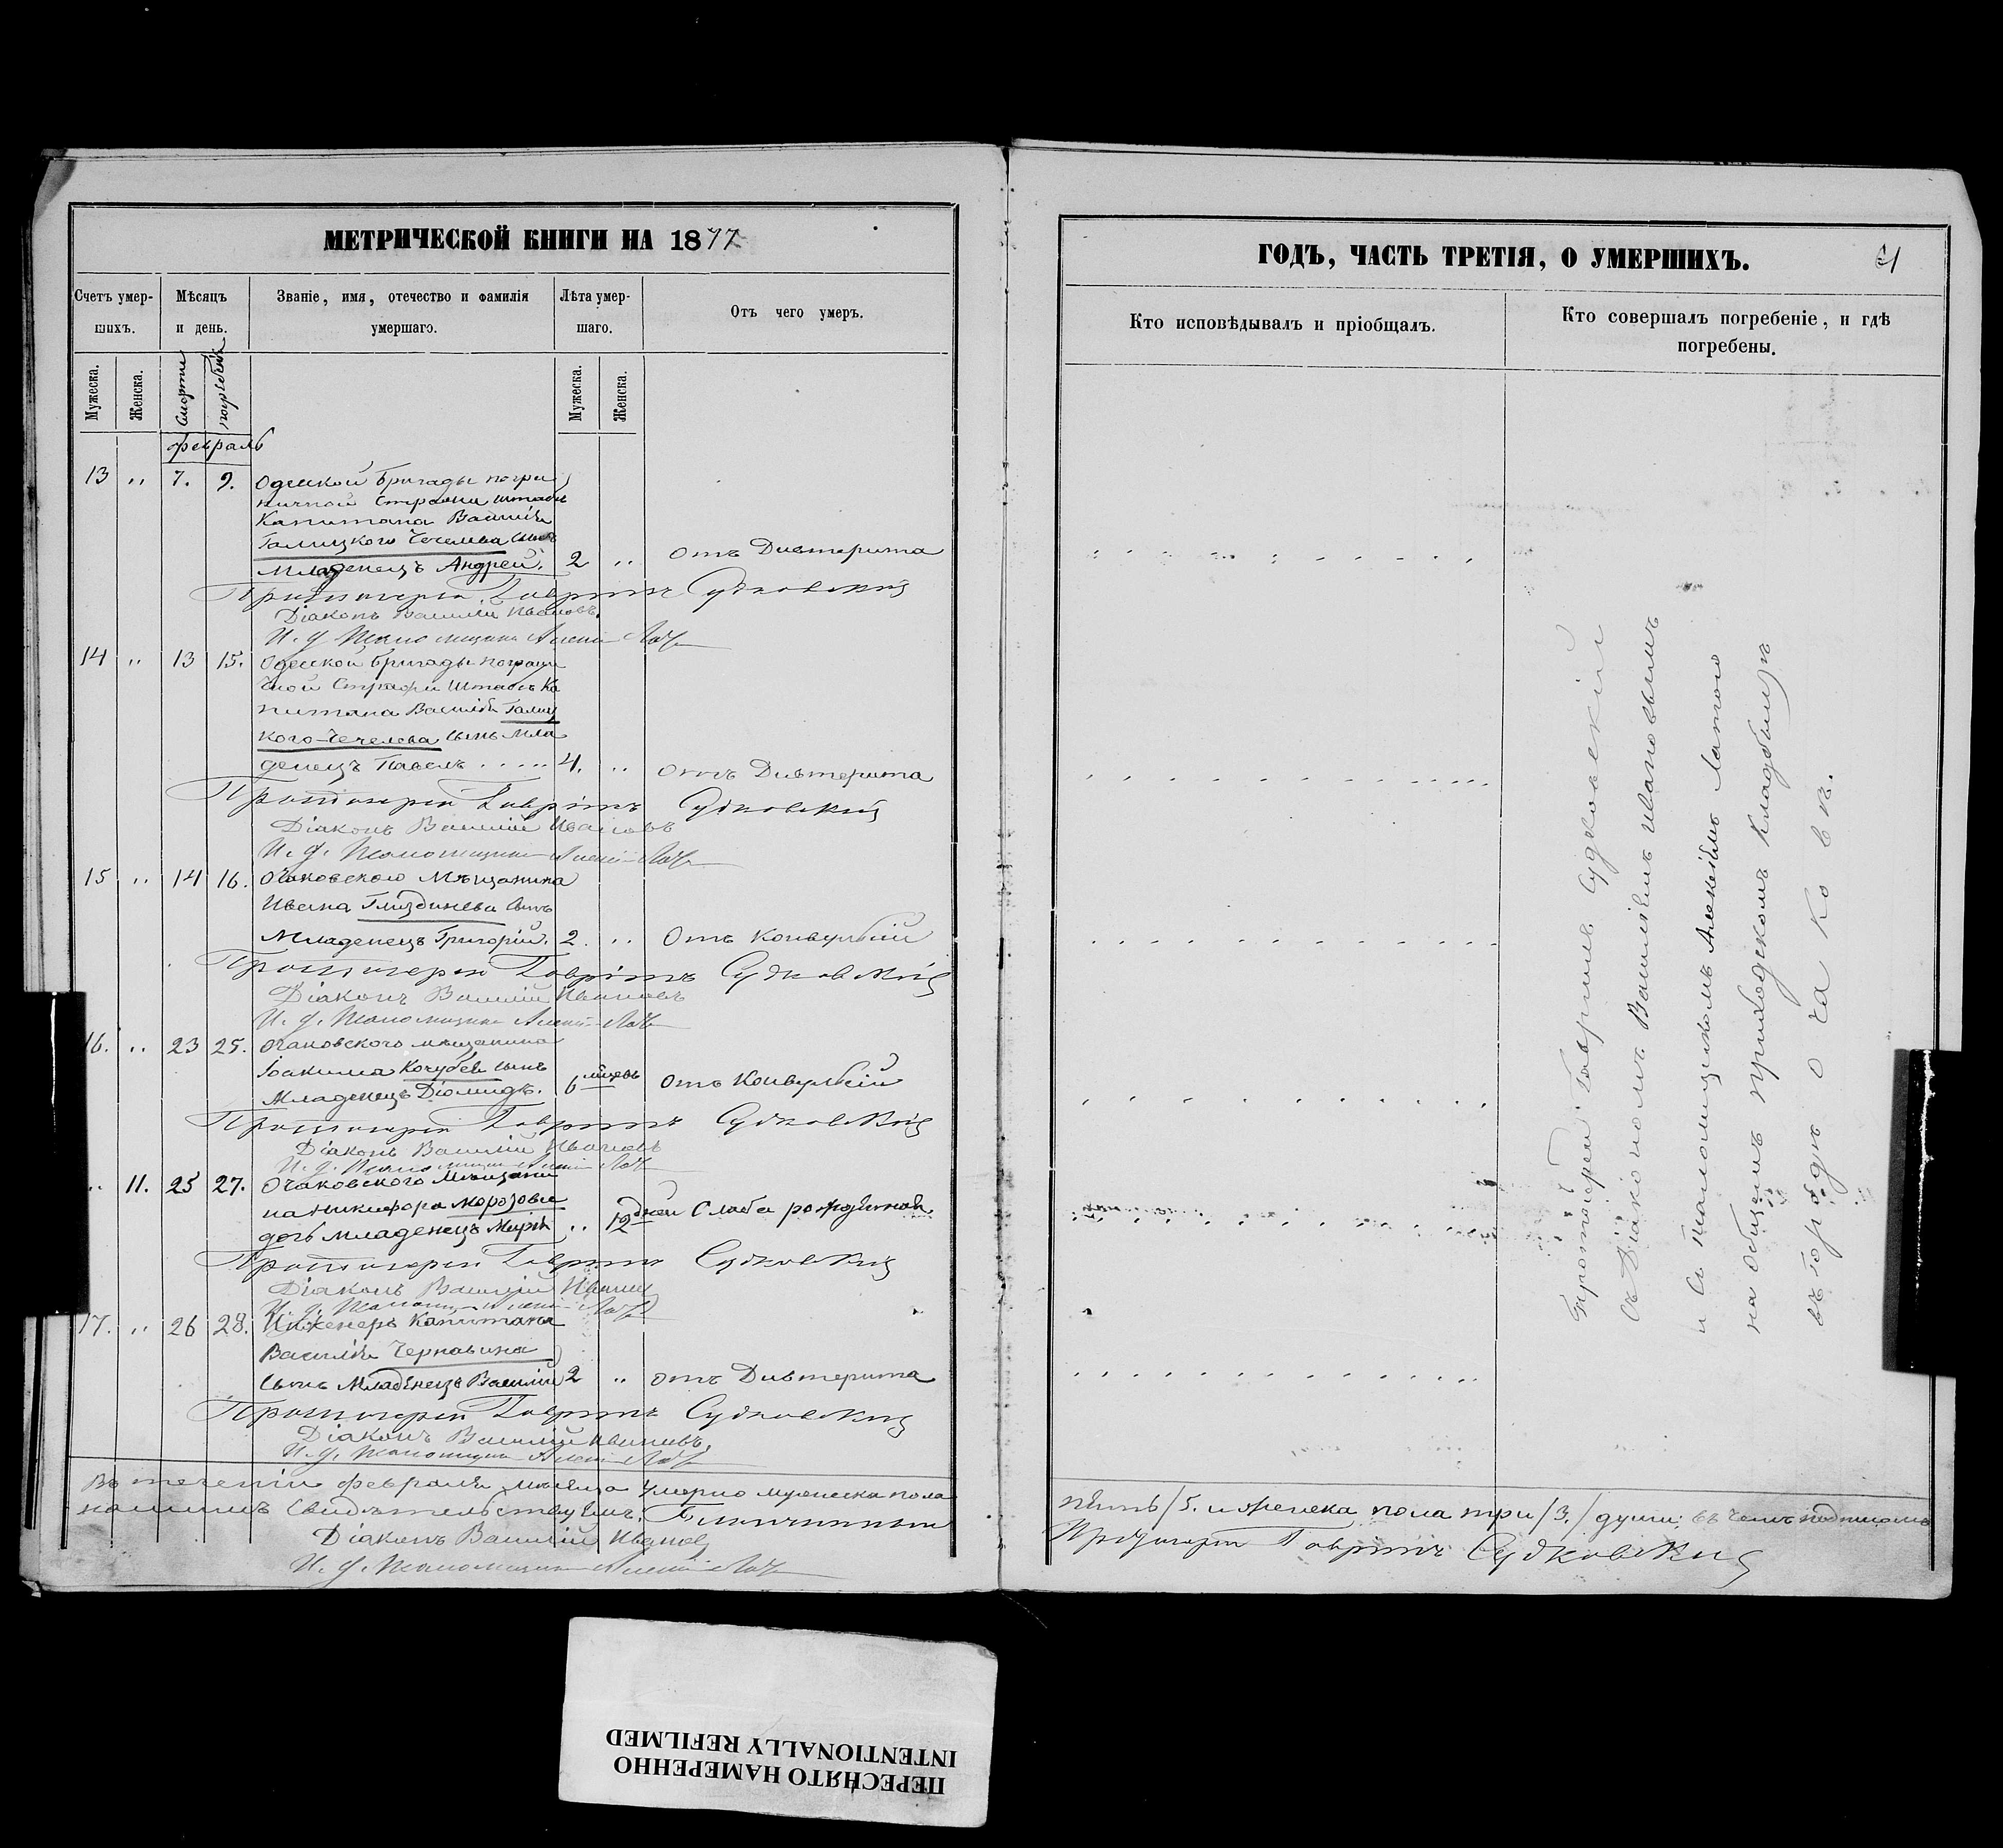 МЕТРИЧЕСКОЙ КНИГИ НА 1877
Счетъ умер-
шихъ.
Мѣсяцъ
и день.
Званіе, имя, отечество и фамилія
умершаго.
Лѣта умер-
шаго.
Отъ чего умеръ.
Мужеска.
Женска.
Смерти
погребенія
Мужеска.
Женска.
февраль
13 „ 7. 9. Одесской бригады погра
ничной Стражи штабсъ
Капитана Василія
Галицкого Чечелева сынъ
Младенецъ Андрей. 2 „ отъ Дифтерита
Протоіерей Гавріилъ Судковскій
Діаконъ Василій Ивановъ.
И. д. Псаломщика Алексій
14 „ 13 15. Одесской бригады погран
чной Стражи Штабсъ Ка
питана Василія Галиц
кого-Чечелева сынъ мла
денецъ Павелъ..... 4. „ отъ Дифтерита
Протоіерей Гавріилъ Судковскій
Діаконъ Василій Ивановъ
И. д. Псаломщика Алексій
15 „ 14 16. Очаковского Мѣщанина
Ивана сынъ
Младенецъ Григорій. 2. „ Отъ Конвульсій
Протоіерей Гавріилъ Судковскій
Діаконъ Василій Ивановъ
И. д. Псаломщика Алексій
16. „ 23 25. Очаковского мѣщанина
Іоакима Кочубея сынъ
Младенецъ Діомидъ. 6 мѣсяц отъ Конвульсій
Протоіерей Гавріилъ Судковскій
Діаконъ Василій Ивановъ
И. д. Псаломщика Алексій
„ 11. 25 27. Очаковского Мѣщани
на Никифора Морозова
дочь младенецъ Марія „ 12 дней Слаба рожденіемъ
Протоіерей Гавріилъ Судковскій
Діаконъ Василій Ивановъ
И. д. Псаломщика Алексій
17. „ 26 28. Инженеръ Капитана
Василія Чернавина
сынъ Младенецъ Василій 2 „ отъ Дифтерита
Протоіерей Гавріилъ Судковскій
Діаконъ Василій Ивановъ.
И. д. Псаломщика Алексій
Въ теченіи февраля мѣсяца умерло мужеска пола
нашимъ свидѣтельствуемъ. Благочинный
Діаконъ Василій Ивановъ
И. д. Псаломщика Алексій
ГОДЪ, ЧАСТЬ ТРЕТІЯ, О УМЕРШИХЪ.
Кто исповѣдывалъ и пріобщалъ.
Кто совершалъ погребеніе, и гдѣ
погребены.
Протоіерей Гавріилъ Судковскій
съ Діакономъ Василіемъ Ивановымъ
и съ Псаломщикомъ Алексѣемъ
на общемъ приходскомъ кладбищѣ
въ городѣ Очаковѣ.
пять /5. и женска пола три /3./ души; въ чемъ подписомъ
Протоіерей Гавріилъ Судковскій
ПЕРЕСНЯТО НАМЕРЕННО
INTENTIONALLY REFILMED